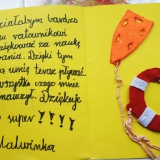 chciałabym bardzo
ratownikowi
dziękować za naukę
ania. Dzięki tym
umię teraz pływać.
wszystko czego mnie
nauczył. Dziękuję
super !!!!
Malwinka